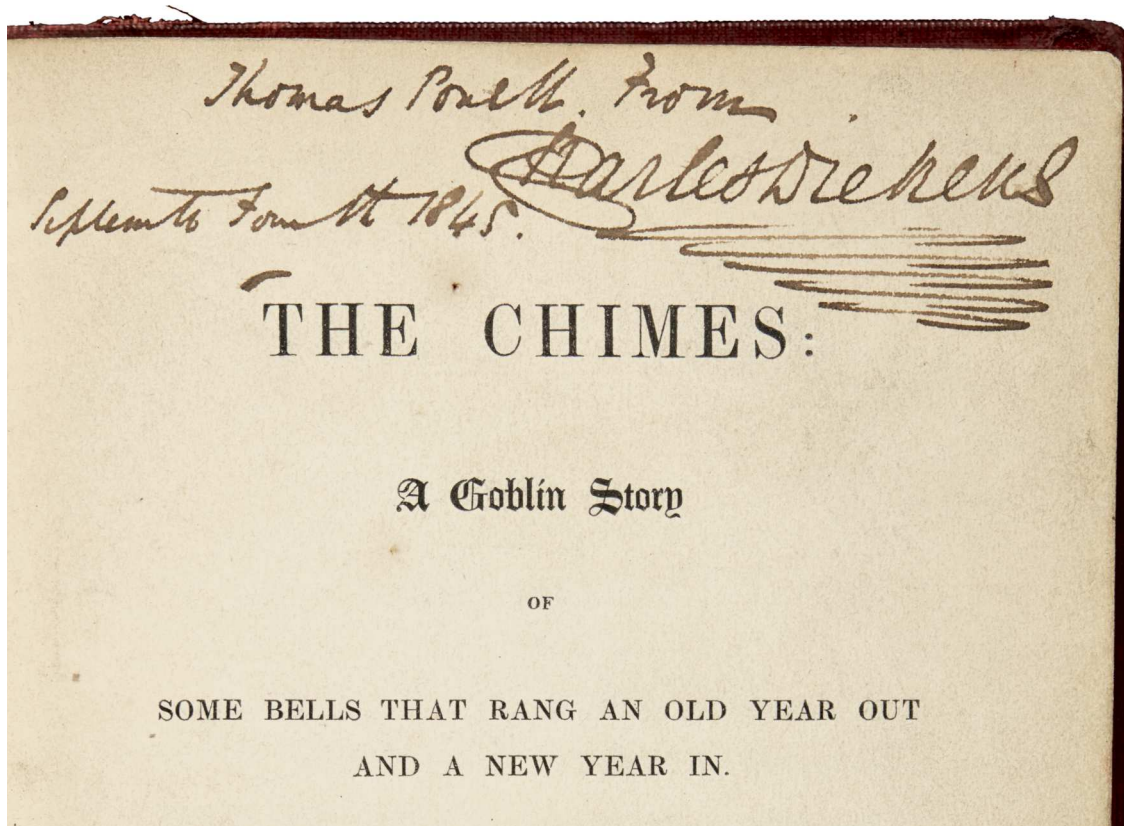 Thomas Powell. From
Charles Dickens
September Fourth 1845.
THE CHIMES:
A Goblin Story
OF
SOME BELLS THAT RANG AN OLD YEAR OUT
AND A NEW YEAR IN.